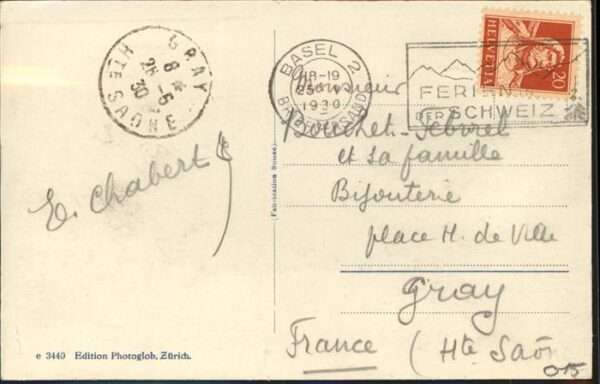 GRAY
8 *
26 -6
30
HTE SAÔNE
BASEL 2
18-19
25
1930
BRIEFVERSAND
FERIEN
DER SCHWEIZ
HELVETIA
20
Monsieur
et sa famille
Bijouterie
place H. de Ville
Gray
France (Hte Saô
E. Chabert
(Fabrication Suisse)
e 3440 Edition Photoglob, Zürich.
015